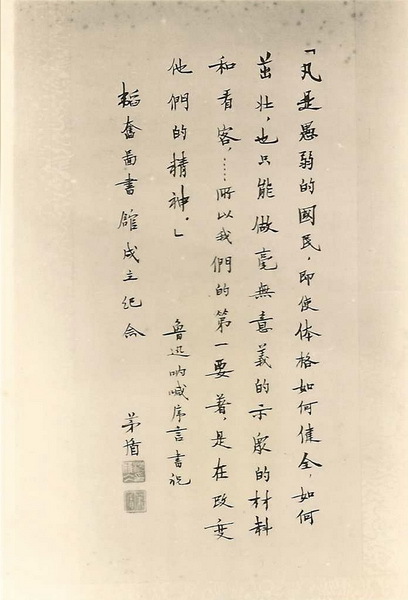 「凡是愚弱的國民，即使体格如何健全，如何
茁壮，也只能做毫無意義的示衆的材料
和看客，……所以我們的第一要著，是在改变
他們的精神。」
魯迅吶喊序言書祝
韜奮啚書館成立紀念
茅盾